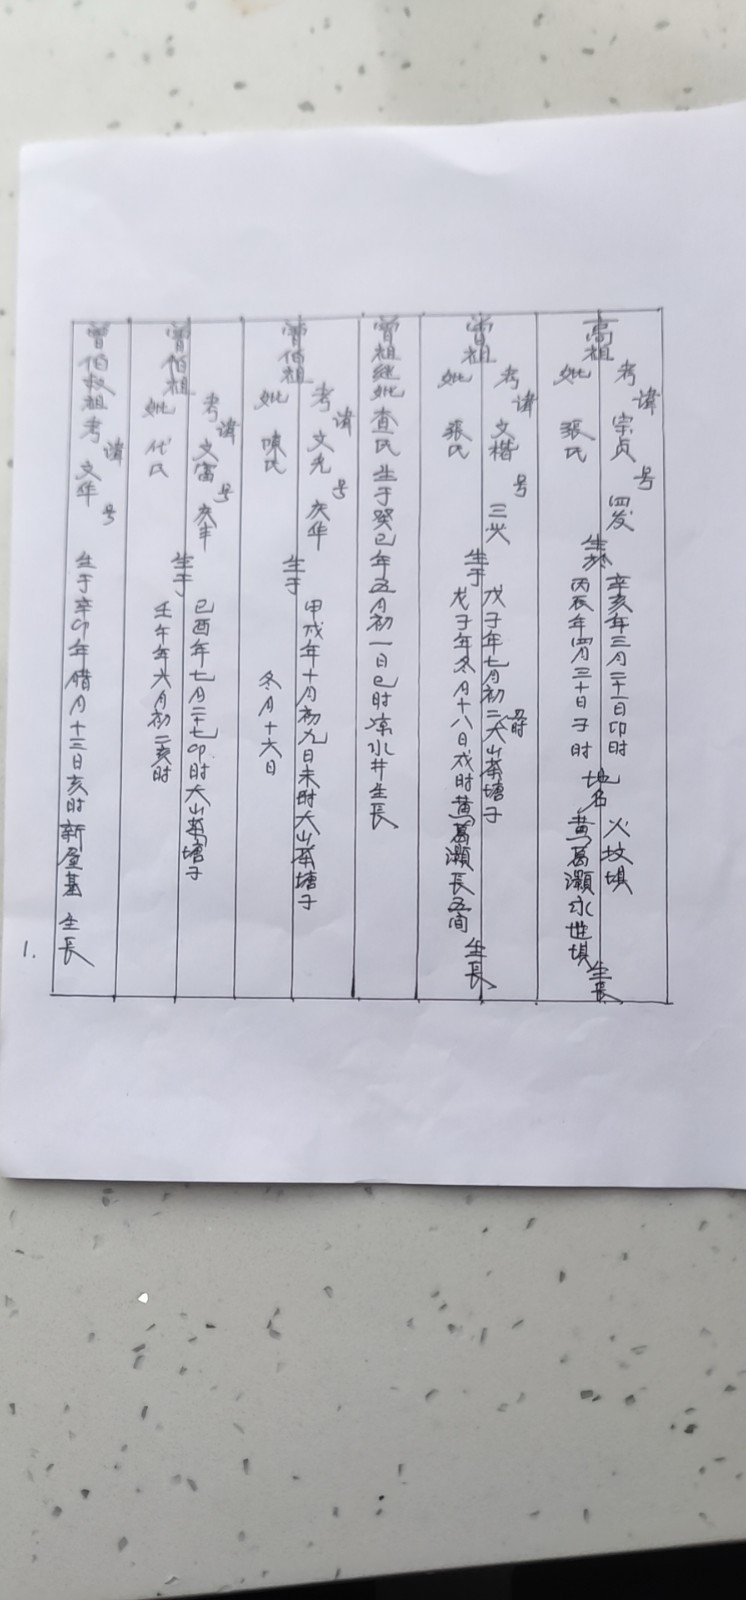 高祖
考諱宗贞号四发
妣張氏
生於
辛亥年三月二十一日卯时
丙辰年四月三十日子时
地名
火坟埧
黄葛灝永世埧
生長
曾祖
考諱文楷号三兴
妣張氏
生于
戊子年七月初二 时大山茶塘子
戊子年冬月十八日戌时黄葛灝長五间
生長
曾祖继妣查氏生于癸巳年五月初一日巳时凉水井生長
曾伯祖
考諱文光号庆华
妣陳氏
生于
甲戌年十月初九日未时大山茶塘子
冬月十六日
曾伯祖
考諱文富号庆丰
妣代氏
生于
己酉年七月二十七卯时大山茶塘子
壬午年六月初二亥时
曾伯叔祖考諱文华号
生于辛卯年腊月十三日亥时新屋基生長
1.